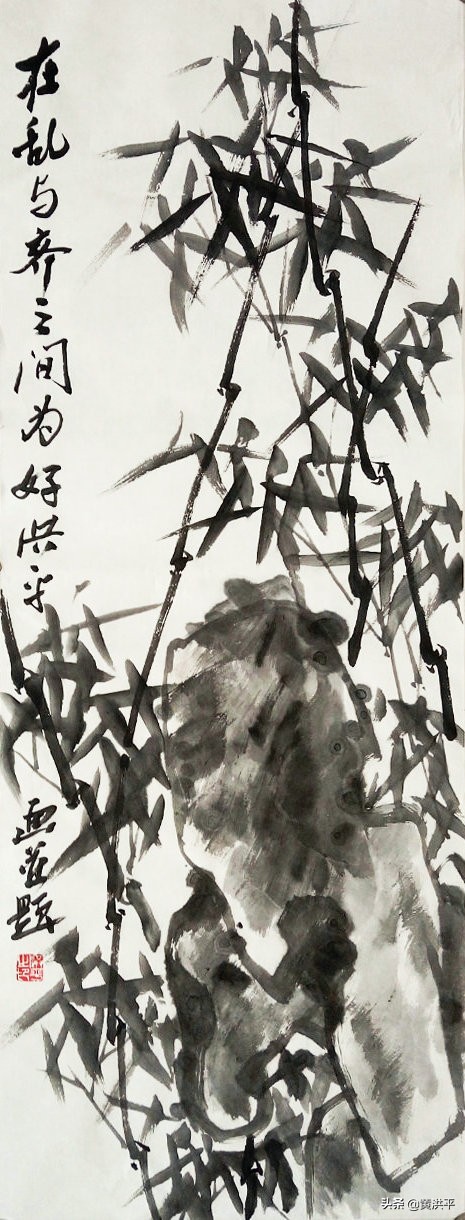 在乱与齐之间为好洪平
画並题
头条 @黄洪平